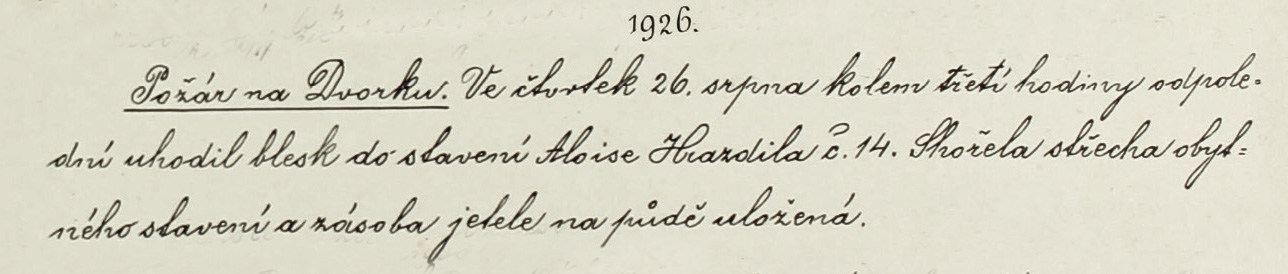 1926.
Požár na Dvorku. Ve čtvrtek 26. srpna kolem třetí hodiny odpole-
dní uhodil blesk do stavení Aloise Hrazdila č. 14. Shořela střecha obyt-
ného stavení a zásoba jetele na půdě uložená.